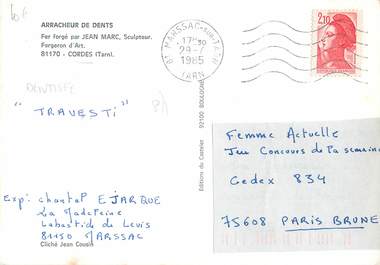 ARRACHEUR DE DENTS
Fer forgé par JEAN MARC, Sculpteur.
Forgeron d'Art.
81170 - CORDES (Tarn).
DENTISTE
"TRAVESTI"
81 MARSSAC-SUR-TARN
17H30
29-7
1985
TARN
2,10
Exp: chantal EJARQUE
La Madeleine
Labastide de Levis
81150 MARSSAC
Cliché Jean Cousin
Editions du Castelet
92100 BOULOGNE
Femme Actuelle
Jeu Concours de la semaine
Cedex 834
75608 PARIS BRUNE